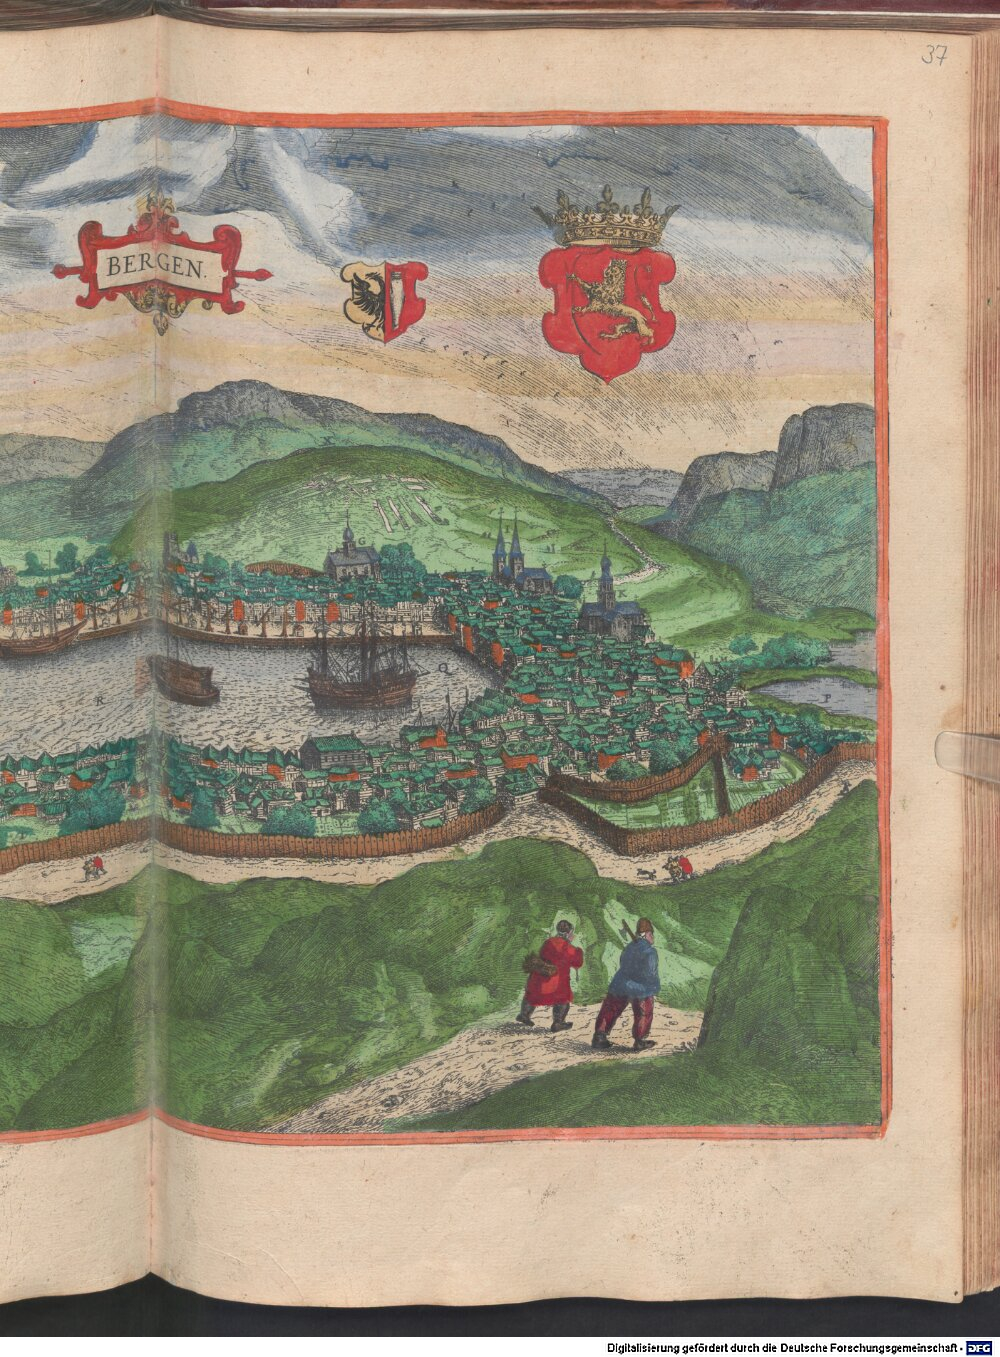 37
BERGEN.
K
Q
R
P
Digitalisierung gefördert durch die Deutsche Forschungsgemeinschaft - DFG